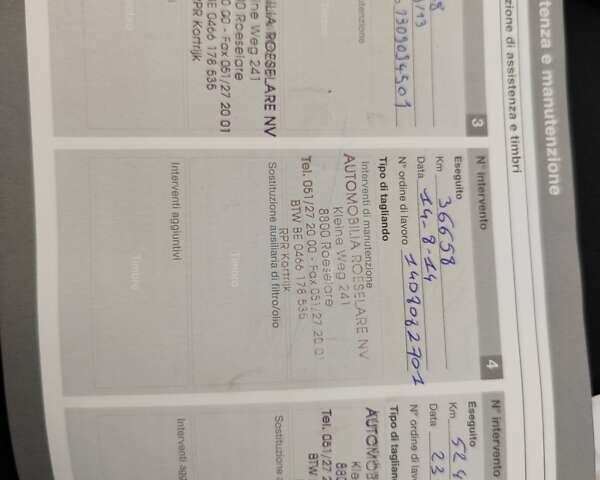 tenza e manutenzione
zione di assistenza e timbri
3
8
/13
1309094501
tenzione
ILIA ROESELARE NV
eine Weg 241
00 Roeselare
20 00 - Fax 051/27 20 01
E 0466 178 535
RPR Kortrijk
Timbro
N° intervento 4
Eseguito
Km 36658
Data 14-8-14
N° ordine di lavoro 1408082701
Tipo di tagliando
Interventi di manutenzione
AUTOMOBILIA ROESELARE NV
Kleine Weg 241
8800 Roeselare
Tel. 051/27 20 00 - Fax 051/27 20 01
BTW BE 0466 178 535
RPR Kortrijk
Sostituzione ausiliaria di filtro/olio
Timbro
Interventi aggiuntivi
Timbro
N° intervento
Eseguito
Km 524
Data 23
N° ordine di lav
Tipo di tagliand
AUTOMOB
Kle
880
Tel. 051/27 2
BTW
Sostituzione a
Interventi agg